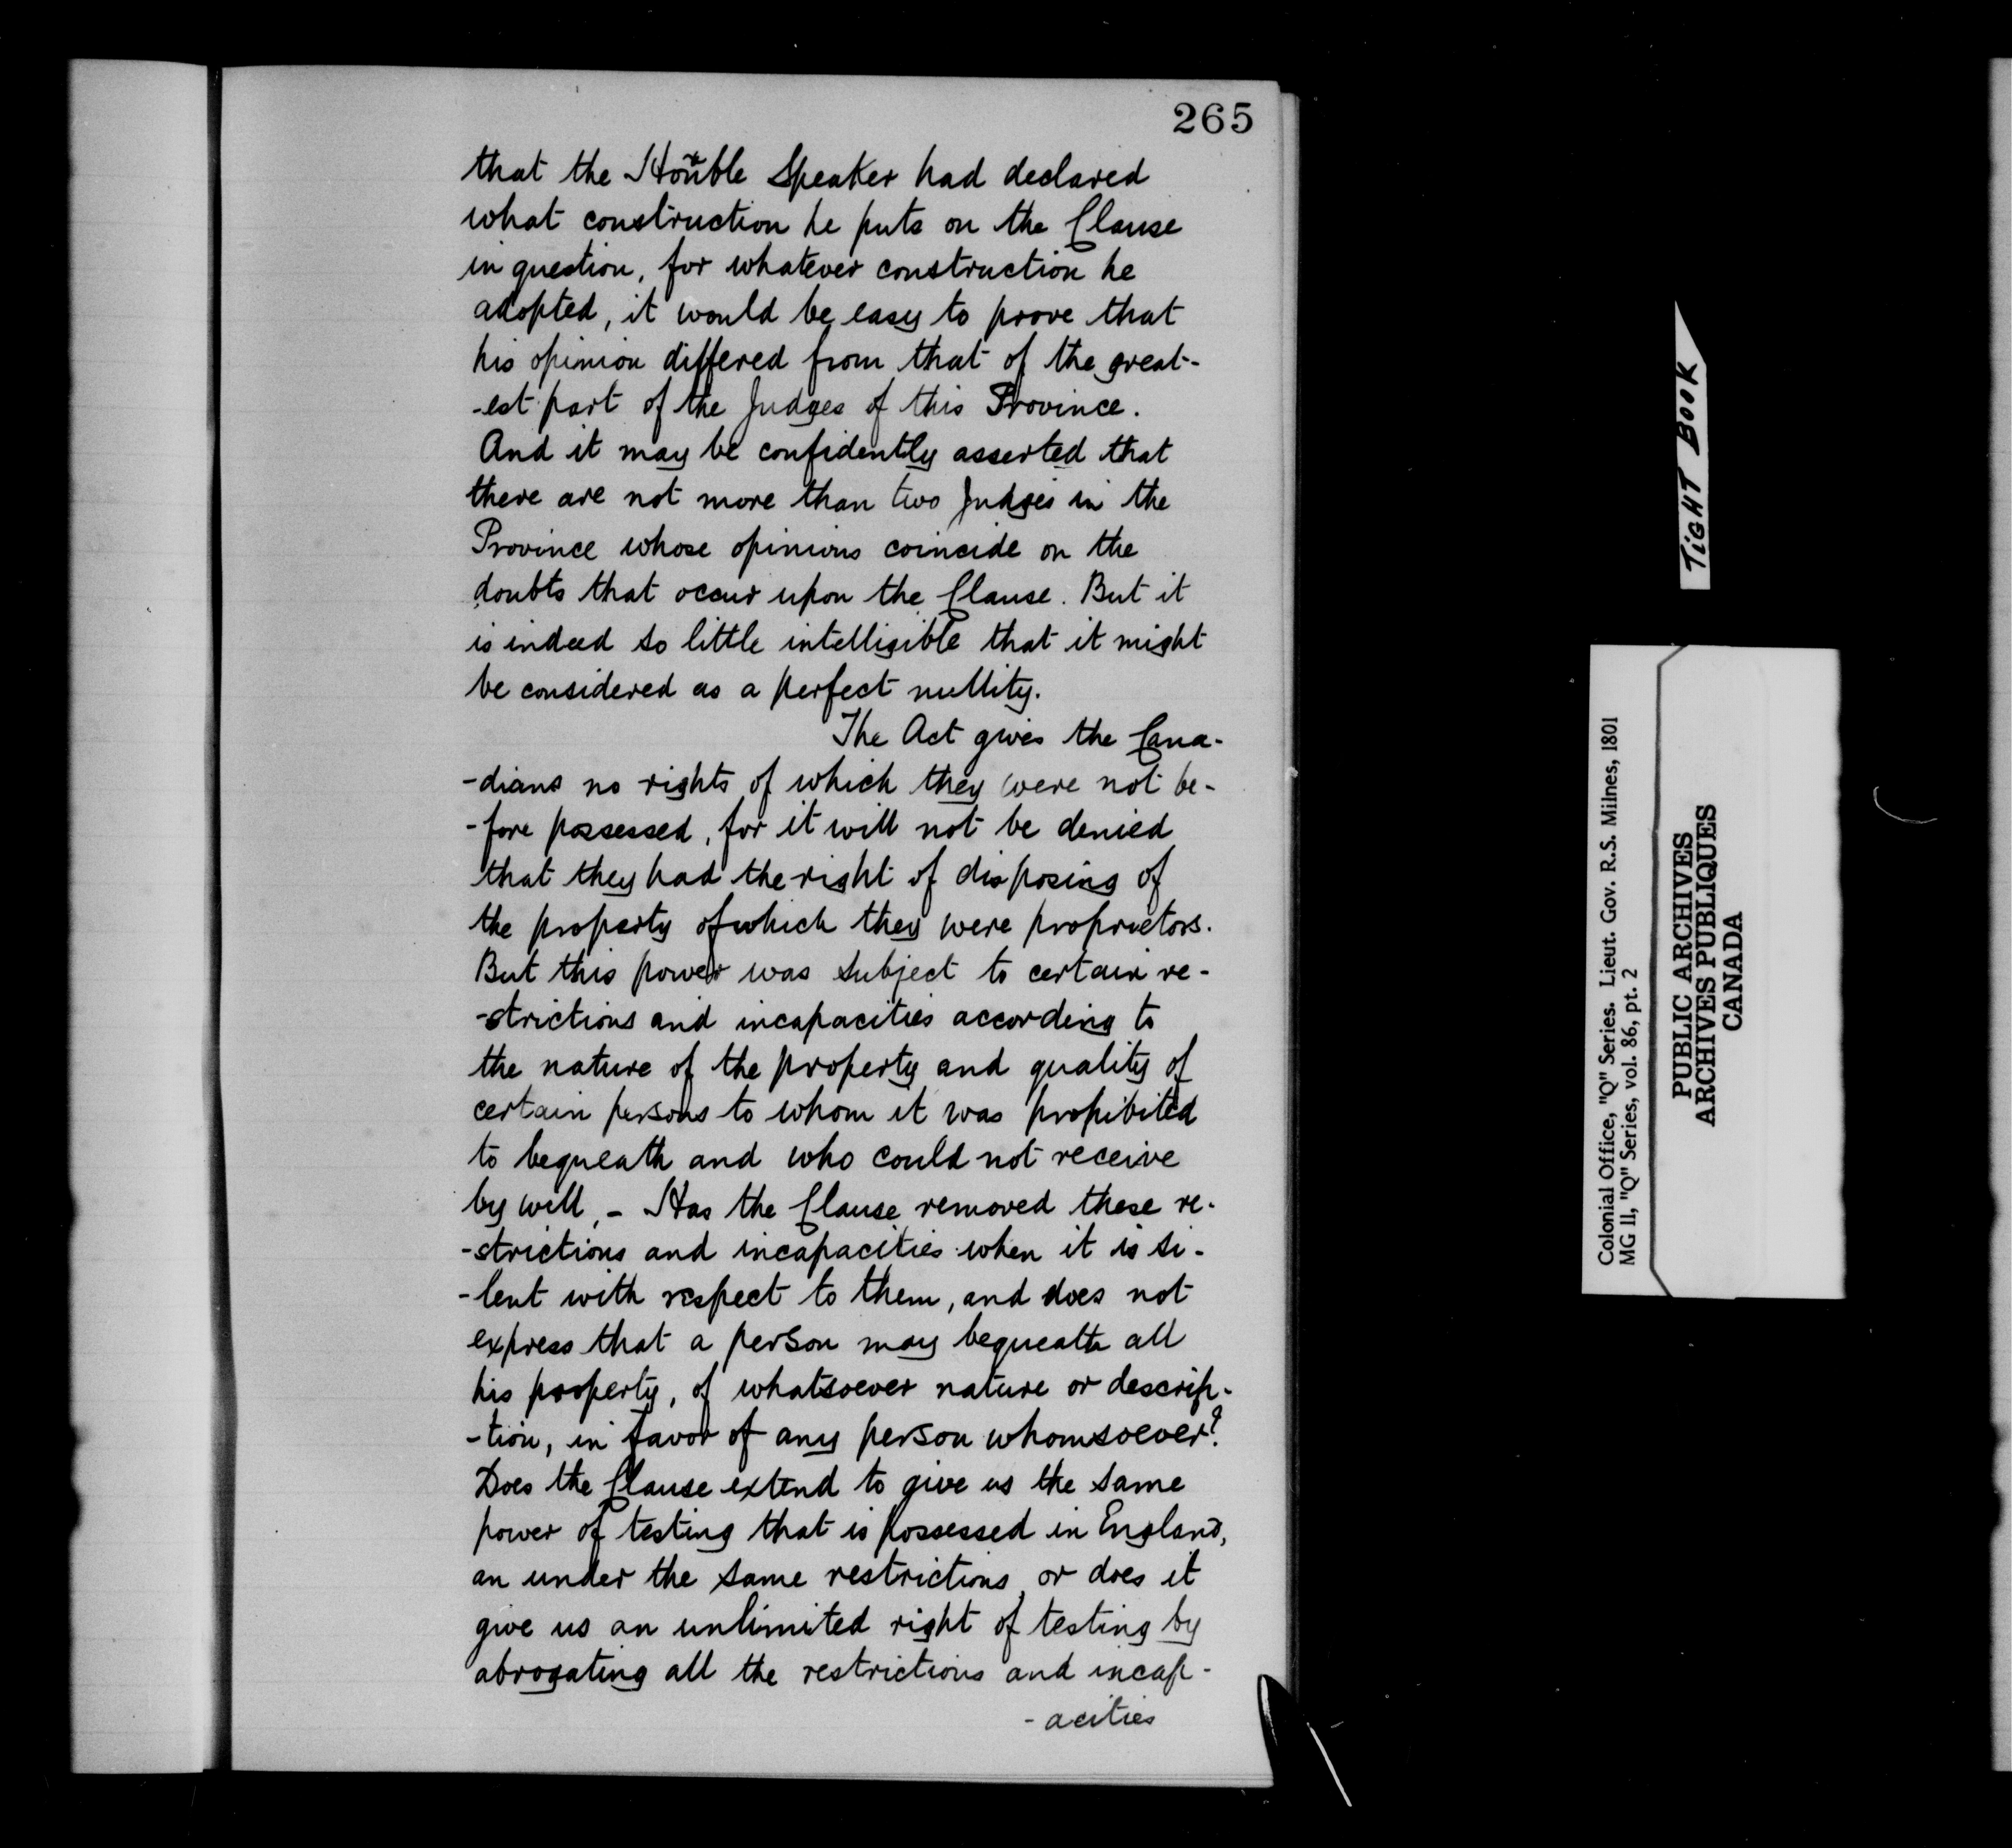 265
that the Hoñble Speaker had declared
what construction he puts on the Clause
in question, for whatever construction he
adopted, it would be easy to prove that
his opinion differed from that of the great-
-est part of the Judges of this Province.
And it may be confidently asserted that
there are not more than two Judges in the
Province whose opinions coincide on the
doubts that occur upon the Clause. But it
is indeed so little intelligible that it might
be considered as a perfect nullity.
The Act gives the Cana-
-dians no rights of which they were not be-
-fore possessed, for it will not be denied
that they had the right of disposing of
the property of which they were proprietors.
But this power was subject to certain re-
-strictions and incapacities according to
the nature of the property and quality of
certain persons to whom it was prohibited
to bequeath and who could not receive
by will, - Has the Clause removed these re-
-strictions and incapacities when it is si-
-lent with respect to them, and does not
express that a person may bequeath all
his property, of whatsoever nature or descrip-
-tion, in favor of any person whomsoever?
Does the Clause extend to give us the same
power of testing that is possessed in England,
an under the same restrictions, or does it
give us an unlimited right of testing by
abrogating all the restrictions and incap-
-acities
TIGHT BOOK
Colonial Office, "Q" Series. Lieut. Gov. R.S. Milnes, 1801
MG 11, "Q" Series, vol. 86, pt. 2
PUBLIC ARCHIVES
ARCHIVES PUBLIQUES
CANADA